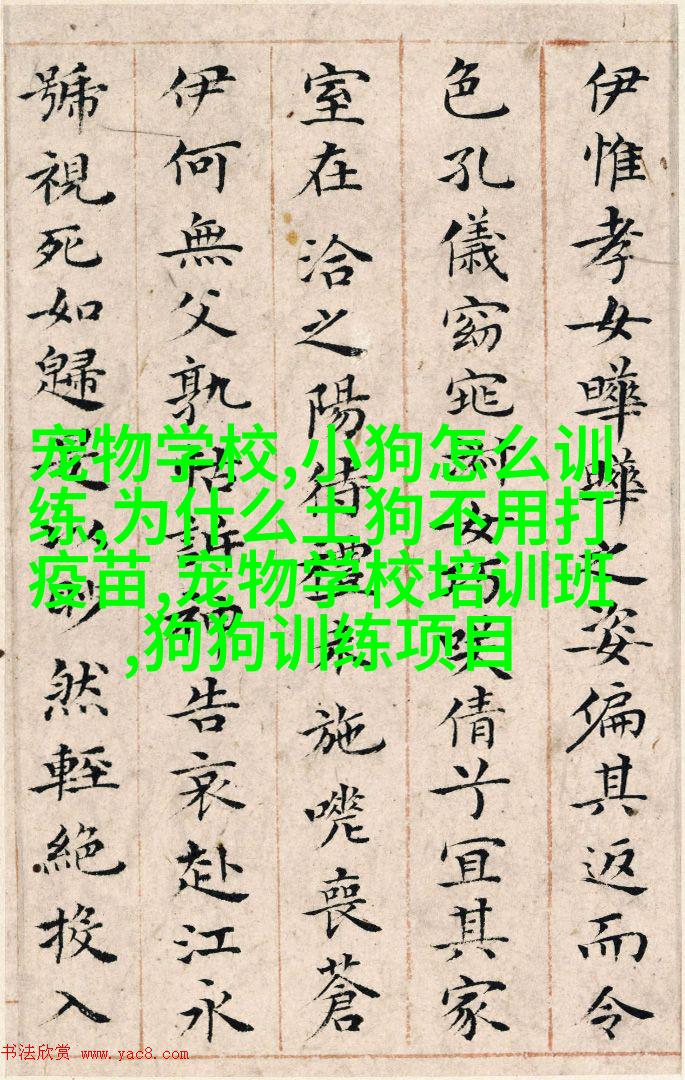 伊惟孝女曄曄之姿偏其返而令
色孔儀窈窕淑女巧笑倩兮宜其家
室在洽之陽待禮未施嗟喪蒼
伊何無父孰怙訴神告哀赴江永
號視死如歸是以眇然輕絕投入
宠物学校,小狗怎么训
练,为什么土狗不用打
疫苗,宠物学校培训班
,狗狗训练项目
书法欣赏 www.yac8.com